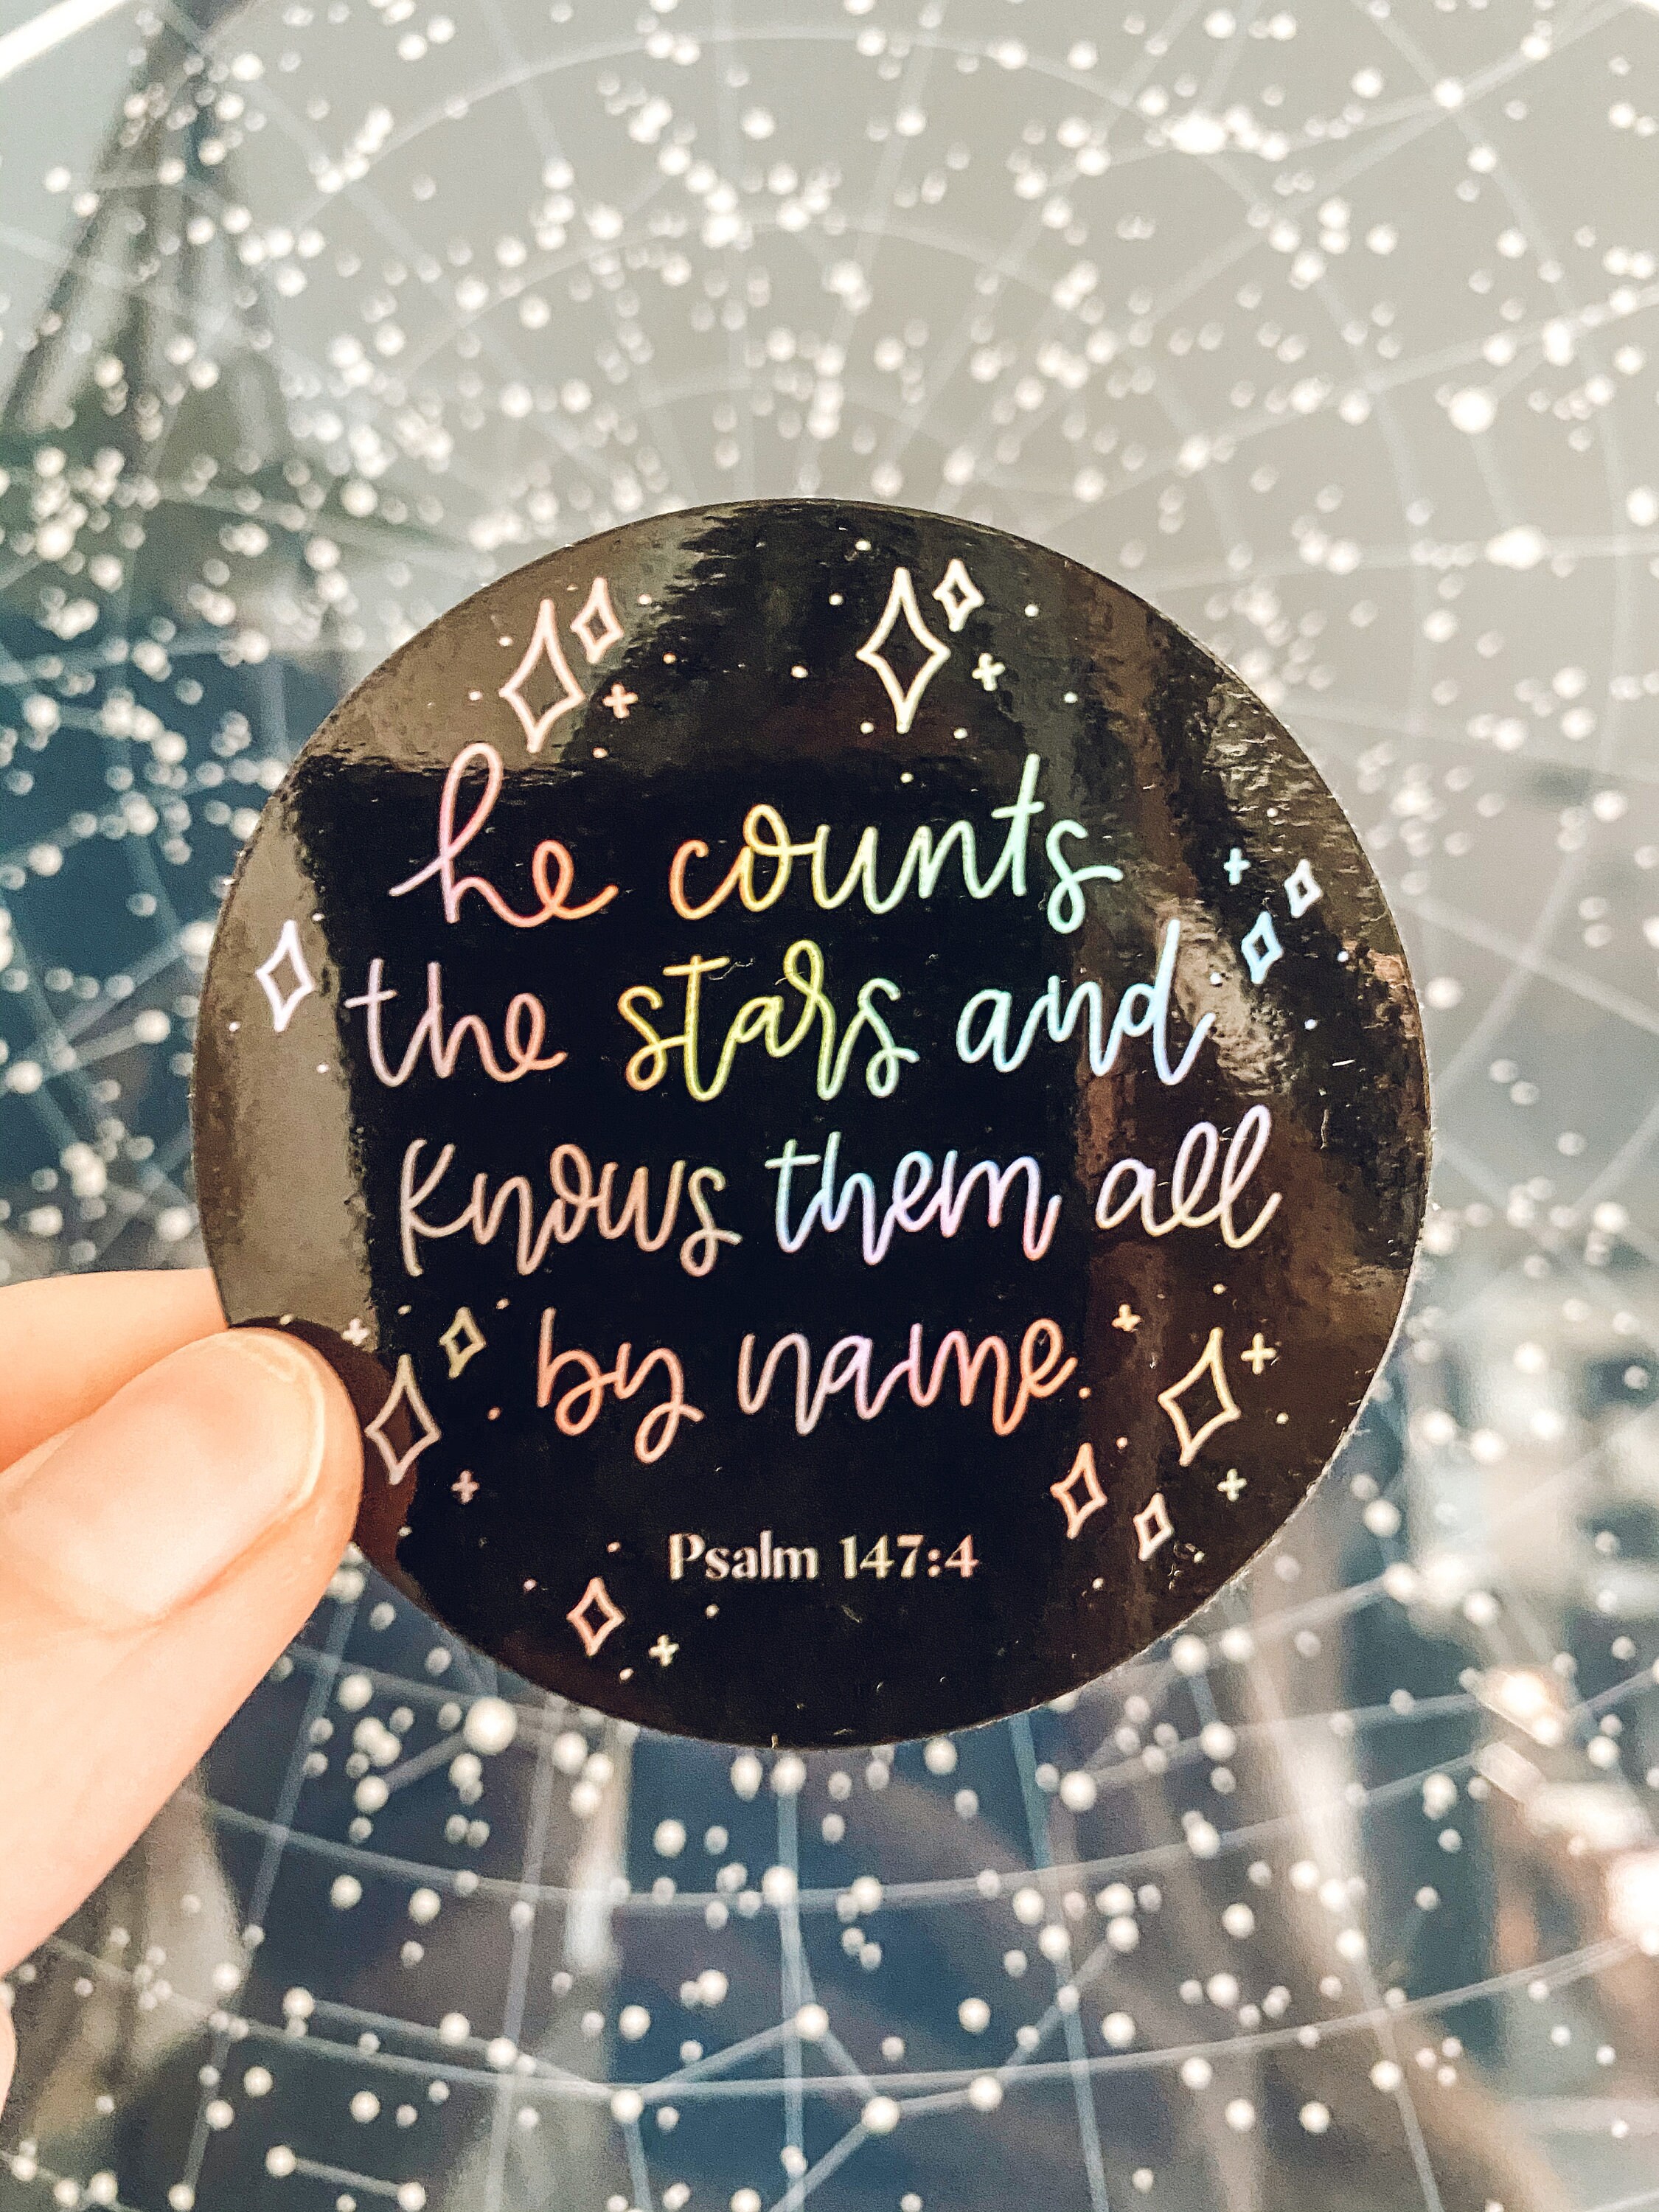 he counts
the stars and
knows them all
by name.
Psalm 147:4